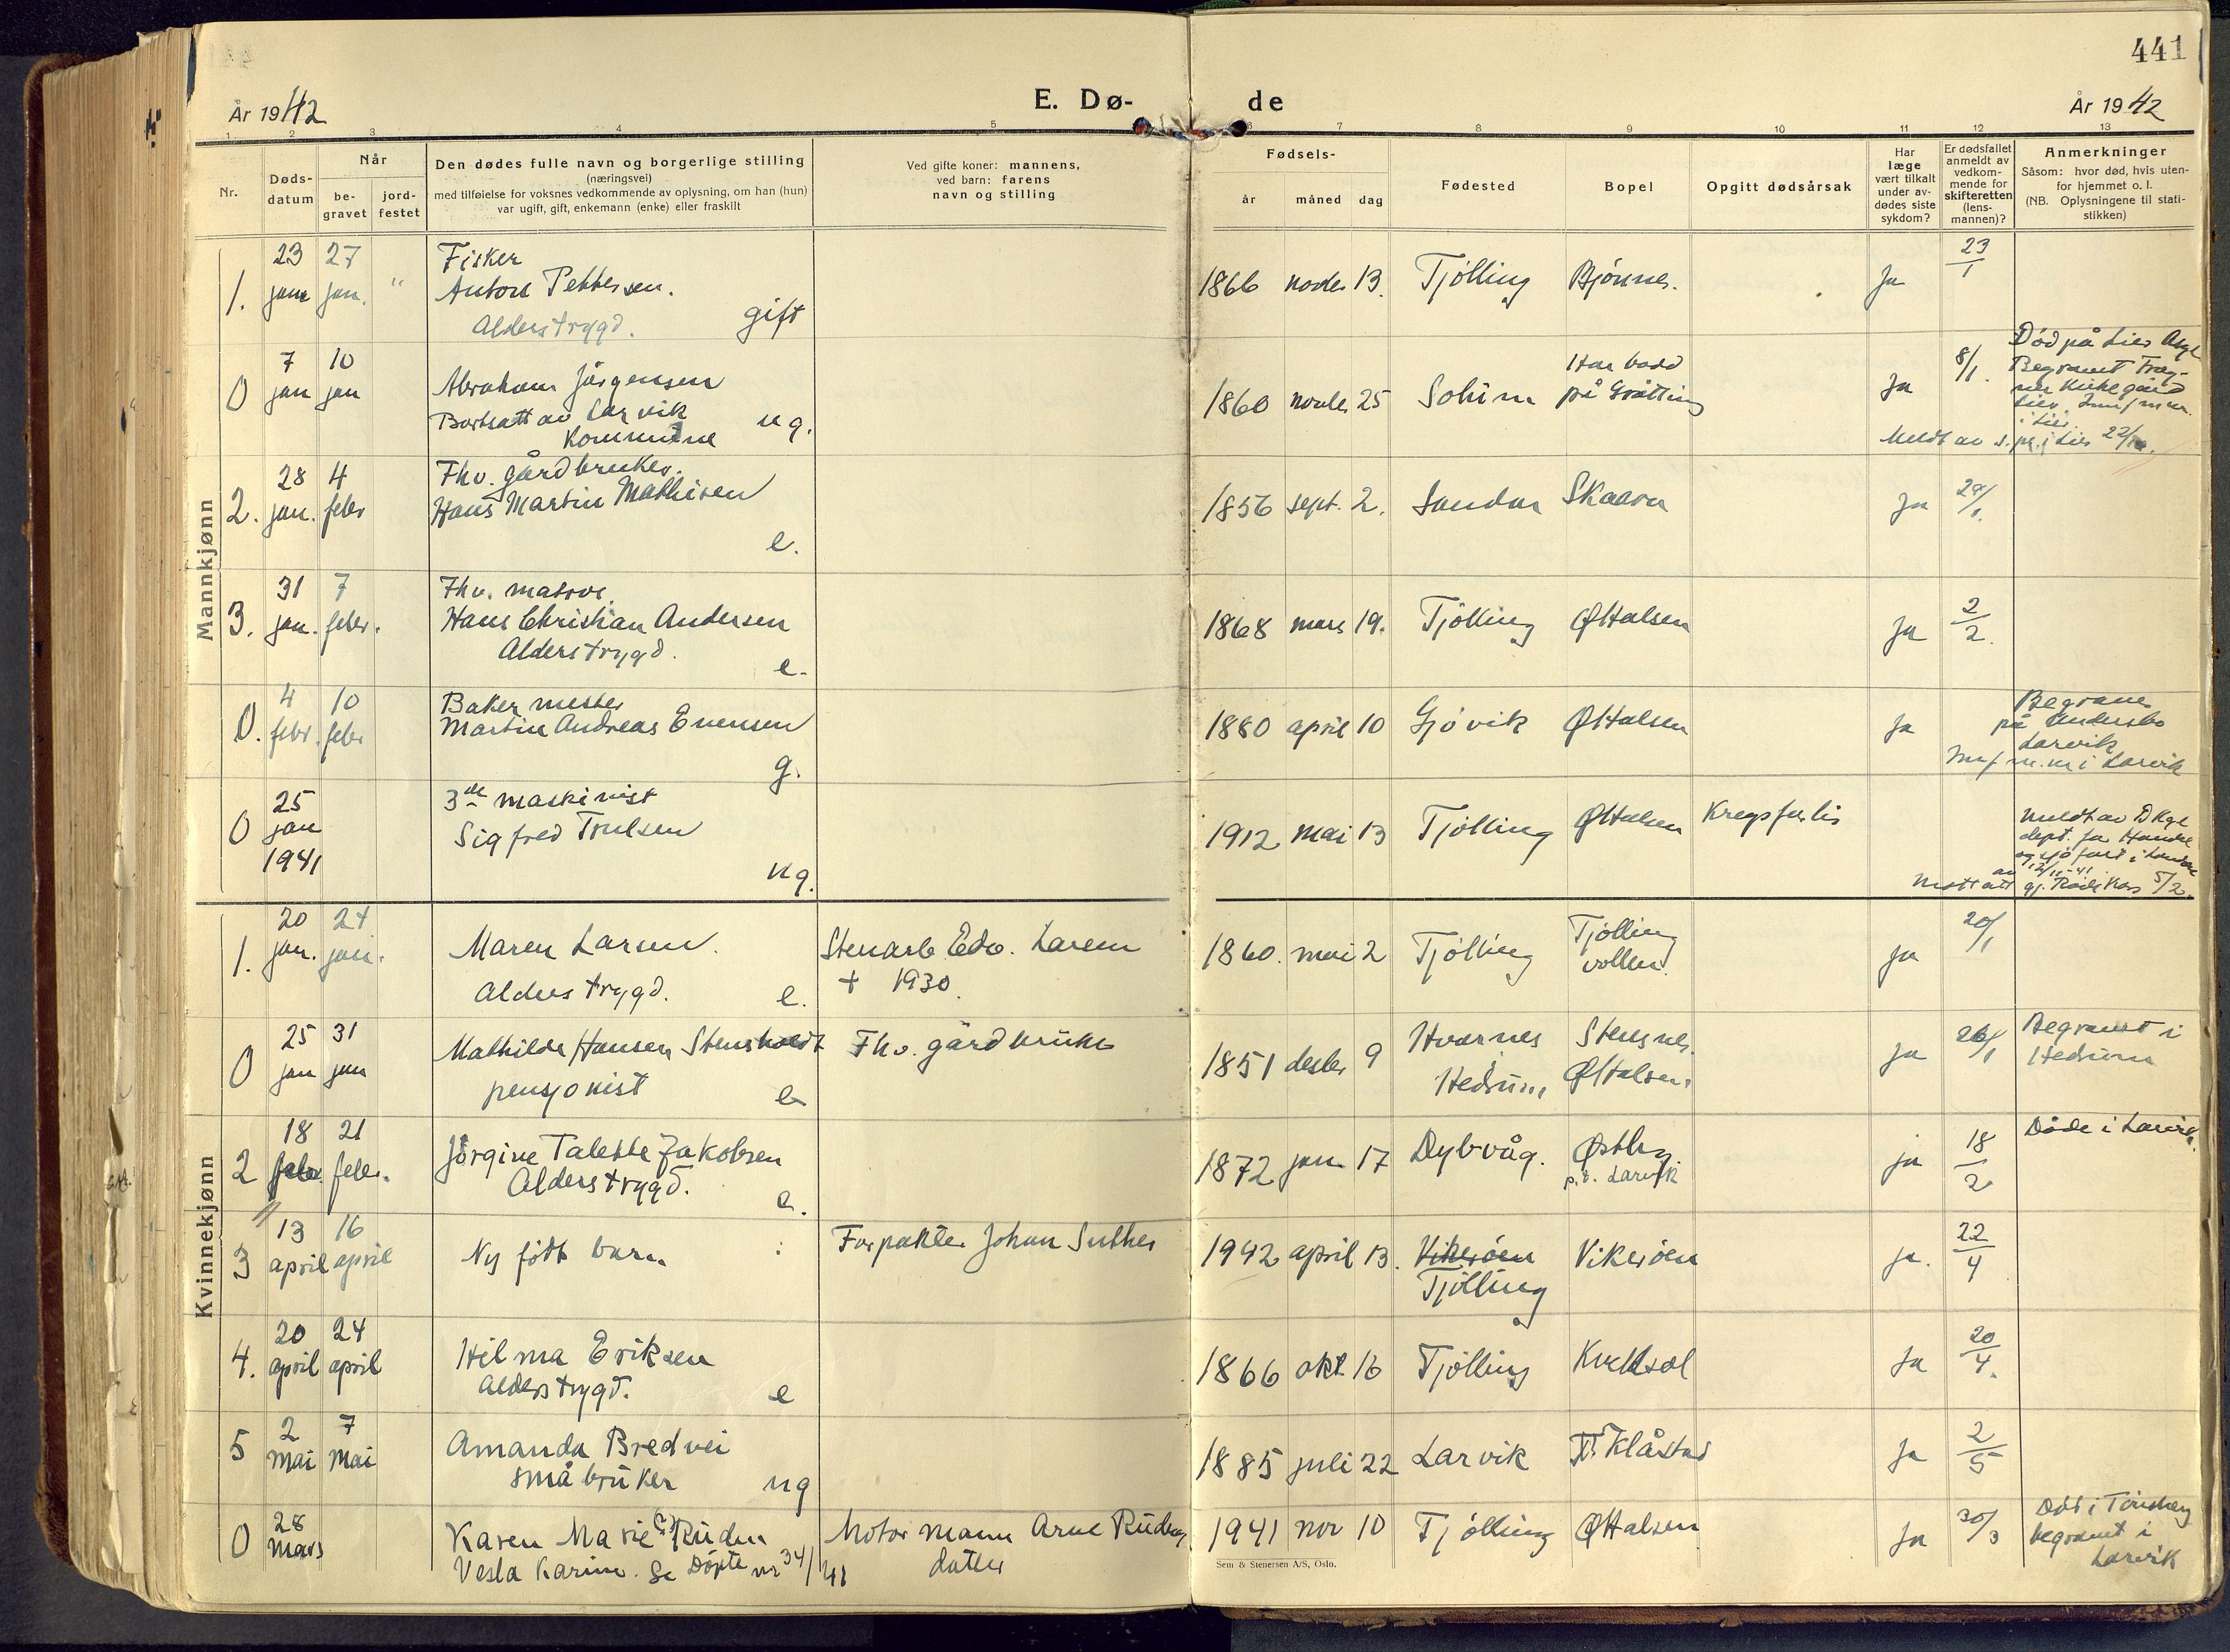 441
År 1942
E. Dø- de
År 1942
1 2 3 4 5 6 7 8 9 10 11 12 13
Nr.
Døds-
datum
Når
be-
gravet
jord-
festet
Den dødes fulle navn og borgerlige stilling
(næringsvei)
med tilføielse for voksnes vedkommende av oplysning, om han (hun)
var ugift, gift, enkemann (enke) eller fraskilt
Ved gifte koner: mannens,
ved barn: farens
navn og stilling
Fødsels-
år måned dag
Fødested
Bopel
Opgitt dødsårsak
Har
læge
vært tilkalt
under av-
dødes siste
sykdom?
Er dødsfallet
anmeldt av
vedkom-
mende for
skifteretten
(lens-
mannen)?
Anmerkninger
Såsom: hvor død, hvis uten-
for hjemmet o. l.
(NB. Oplysningene til stati-
stikken)
Mannkjønn
1. 23 jan 27 jan. "
Fisker
Anton Pettersen.
Alderstrygd. gift
1866 novbr 13. Tjølling Bjønnes. Ja 23/1
0 7 jan 10 jan
Abraham Jørgensen
Bortsatt av Larvik
Kommune ug.
1860 novbr 25 Solum Har bodd
på Gråtting Ja 8/1.
Død på Lier
Begravet
Kirkegård
Lier.
i Lier.
Meldt av s.pr. i Lier
2. 28 jan. 4 febr
Fhv. gårdbruker.
Hans Martin Mathisen
e.
1856 sept. 2. Sandar Skaara Ja 29/1.
3. 31 jan. 7 febr.
Fhv. matros.
Hans Christian Andersen
Alderstrygd. e.
1868 mars 19. Tjølling Ø Halsen Ja 2/2.
0. 4 febr. 10 febr
Baker mester
Martin Andreas Evensen
g.
1880 april 10 Gjøvik Ø Halsen Ja
Begravet
på Undersbo
Larvik
i Larvik
0 25 jan 1941
3de maskinist
Sigfred Trulsen
ug.
1912 mai 13 Tjølling Ø Halsen Krigsforlis
meldt av D Kgl
dept. for Handel
og sjøfart i London
12/11-41.
Mottatt av gj. Røde Kors 5/2.
Kvinnekjønn
1. 20 jan. 24 jan.
Maren Larsen.
Alderstrygd. e.
Stenarb. Edv. Larsen
+ 1930.
1860. mai 2 Tjølling Tjølling
vollen. Ja 20/1
0 25 jan 31 jan
Mathilde Hansen Stensholdt
pensjonist e
Fhv. gårdbruker
1851 desbr 9 Hvarnes
i
Hedrum Stensnes.
Ø Halsen. Ja 26/1
Begravet i
Hedrum
2 18 febr. 21 febr.
Jørgine Talette Jakobsen
Alderstrygd. e.
1872 jan. 17 Dybvåg. Østby.
p.t. Larvik ja 18/2
Døde i Larvik.
3 13 april 16 april
Ny født barn :
Forpakter Johan Suther
1942 april 13. Vikerøen
Tjølling Vikerøen ja. 22/4
4. 20 april 24 april
Hilma Eriksen
Alderstrygd. e
1866 okt. 16 Tjølling Kveldsol Ja 20/4.
5 2 mai 7 mai
Amanda Bredvei
småbruker ug
1885 juli 22 Larvik Klåstad Ja 2/5
0 28 mars
Karen Marie (?) Ruden
Vesla Karin. Se Døpte nr 34/41
Motormann Arne Ruden
datter
1941 nov 10 Tjølling Ø Halsen Ja 30/3
Død i Tønsberg
begravet i
Larvik
Sem & Stenersen A/S, Oslo.